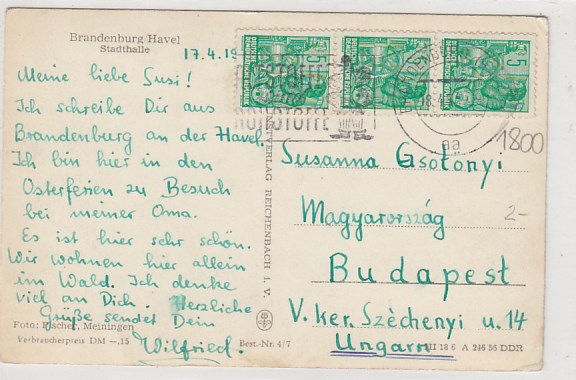 Brandenburg/Havel
Stadthalle
17.4.19
Meine liebe Susi!
Ich schreibe Dir aus
Brandenburg an der Havel.
Ich bin hier in den
Osterferien zu Besuch
bei meiner Oma.
Es ist hier sehr schön.
Wir wohnen hier allein
im Wald. Ich denke
viel an Dich. Herzliche
Grüße sendet Dein
Wilfried.
Foto: Fischer, Meiningen
Verbraucherpreis DM —.15
Best.-Nr. 4/7
REICHENBACH I. V.
5
5
5
1800
2-
Susanna Gsotónyi
Magyarország
Budapest
V. ker. Szèchenyi u. 14
Ungarn
A 246 56 DDR